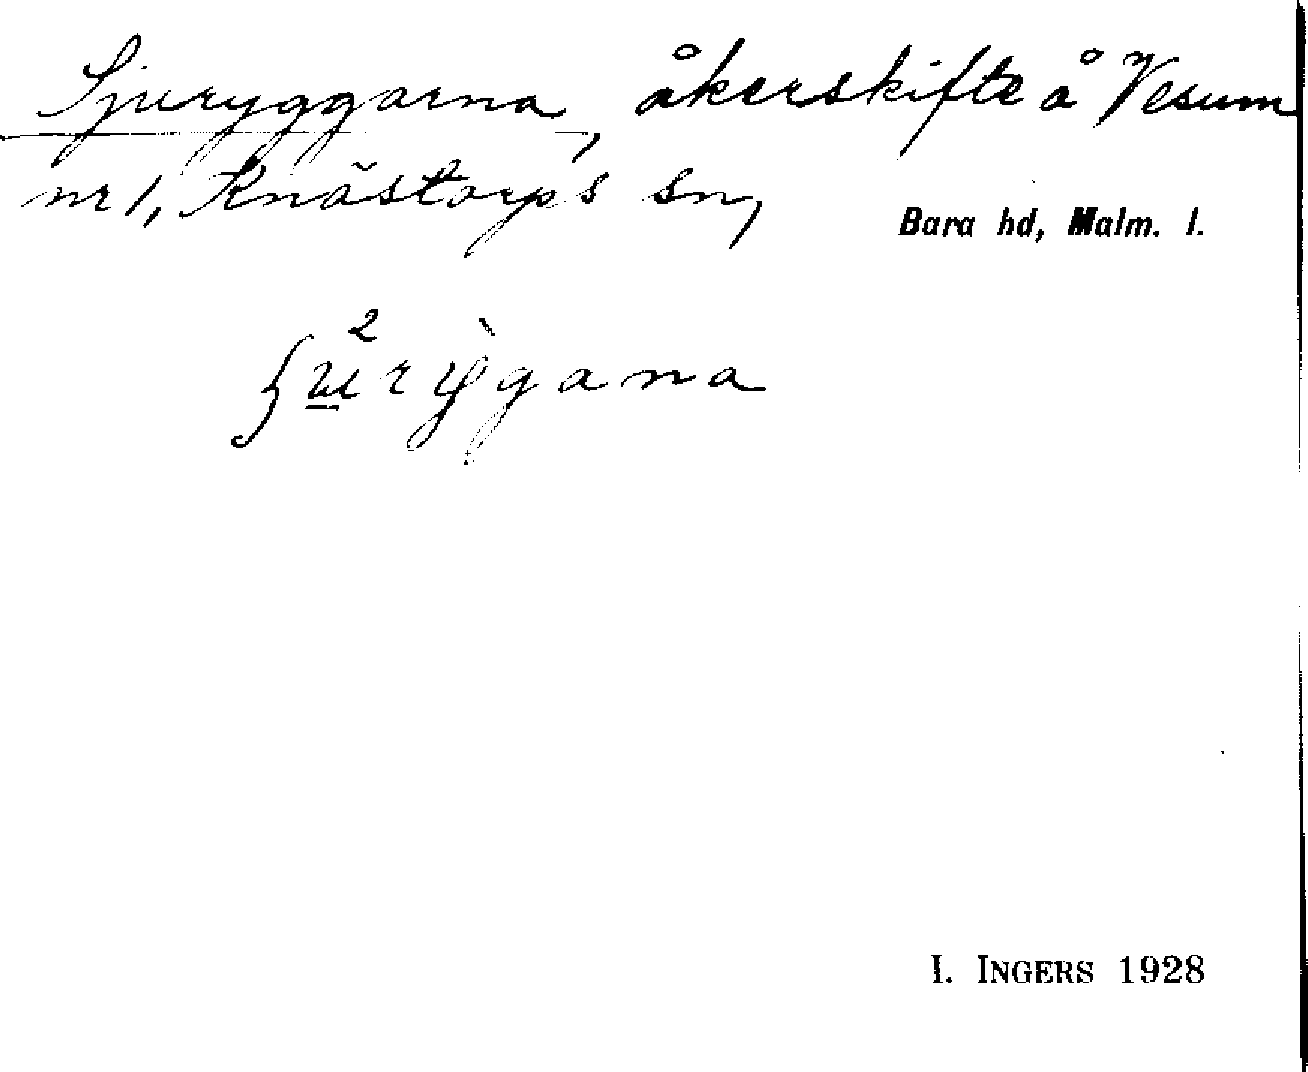 Sjuryggarna, åkerskifte å Vesum
nr 1, Knästorps sn,
Bara hd, Malm. l.
I. INGERS 1928